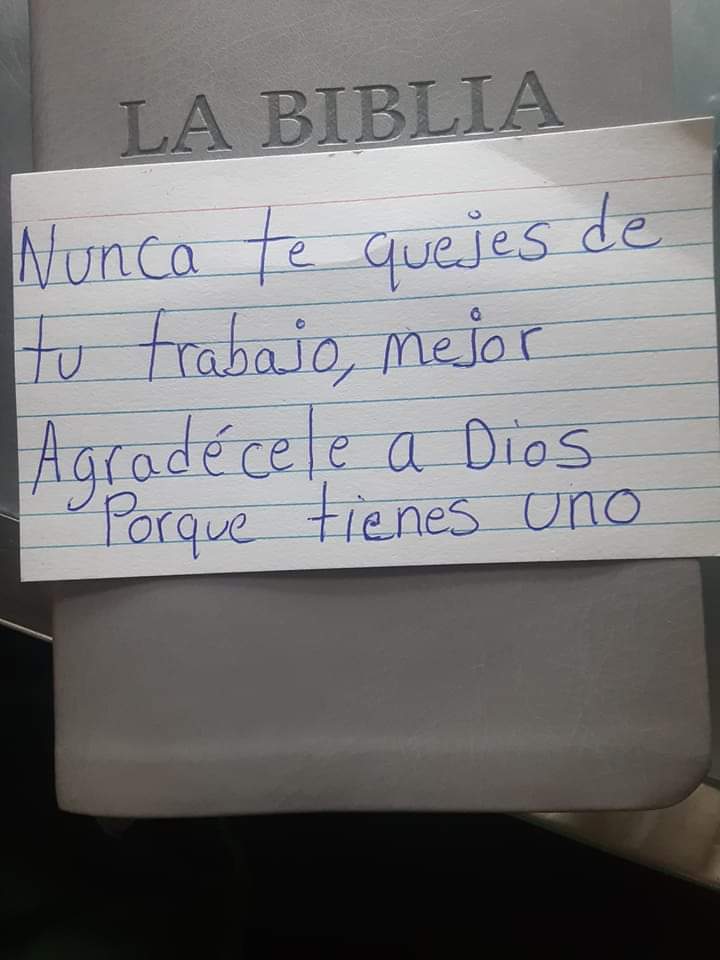 LA BIBLIA
Nunca te quejes de
tu trabajo, mejor
Agradécele a Dios
Porque tienes uno